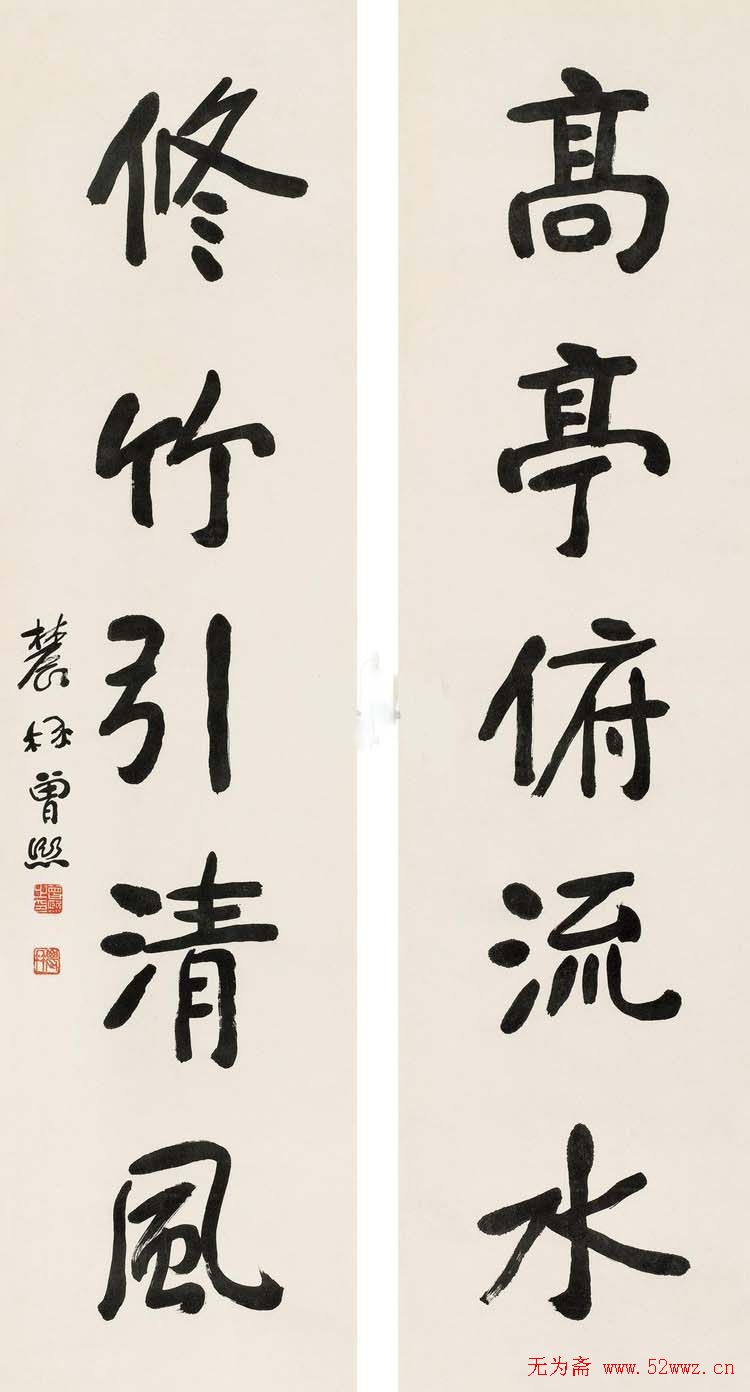 髙亭俯流水
修竹引清風
農髯曾熙
无为斋 www.52wwz.cn